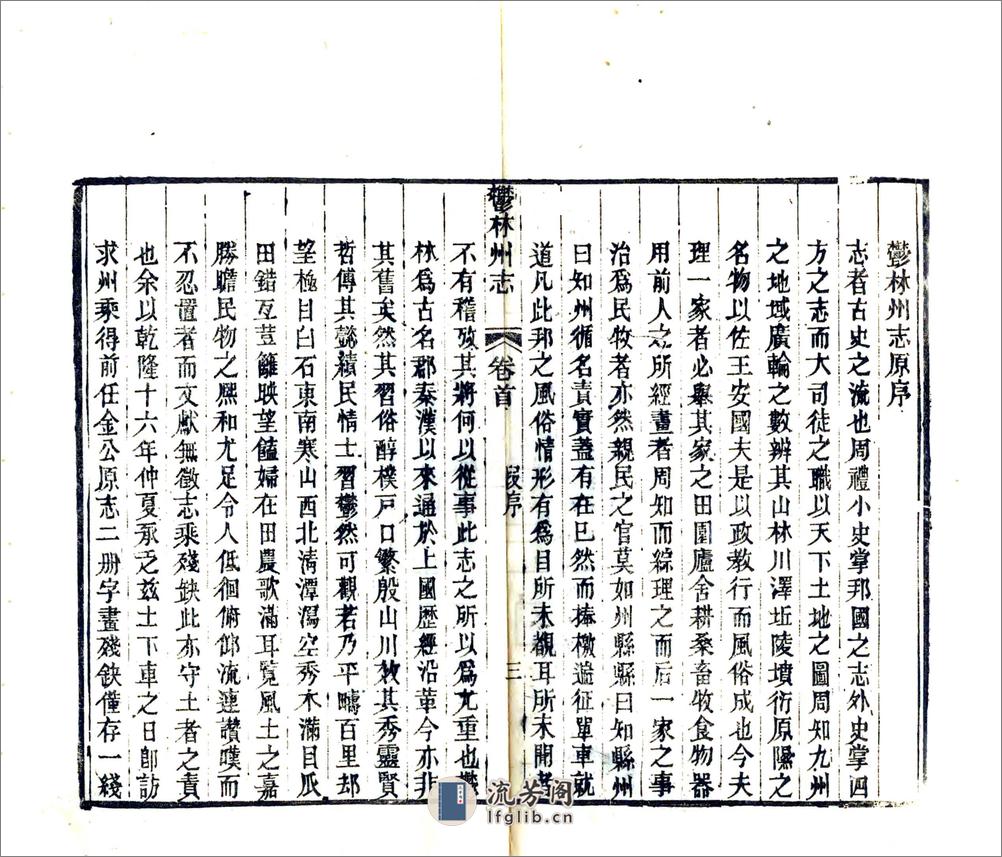 鬱林州志原序
志者古史之流也周禮小史掌邦國之志外史掌四
方之志而大司徒之職以天下土地之圖周知九州
之地域廣輪之數辨其山林川澤坵陵墳衍原隰之
名物以佐王安國夫是以政教行而風俗成也今夫
理一家者必舉其家之田園廬舍耕桑畜牧食物器
用前人之所經畫者周知而綜理之而后一家之事
治爲民牧者亦然親民之官莫如州縣縣曰知縣州
曰知州循名責實蓋有在已然而捧檄遄征單車就
道凡此邦之風俗情形有爲目所未覩耳所未聞者
鬱林州志
卷首
序
三
不有稽攷其將何以從事此志之所以爲尤重也鬱
林爲古名郡秦漢以來通於上國歷經沿革今亦非
其舊矣然其習俗醇樸戸口繁殷山川效其秀靈賢
哲傳其懿績民情士習鬱然可觀若乃平疇百里却
望極目白石東南寒山西北清潭瀉空秀木滿目瓜
田錯互荳籬映望饁婦在田農歌滿耳覧風土之嘉
勝瞻民物之熈和尤足令人低徊俯仰流連讚嘆而
不忍置者而文獻無徵志乘殘缺此亦守土者之責
也余以乾隆十六年仲夏承乏兹土下車之日即訪
求州乘得前任金公原志二册字畫殘缺僅存一綫
流芳阁
lfglib.cn